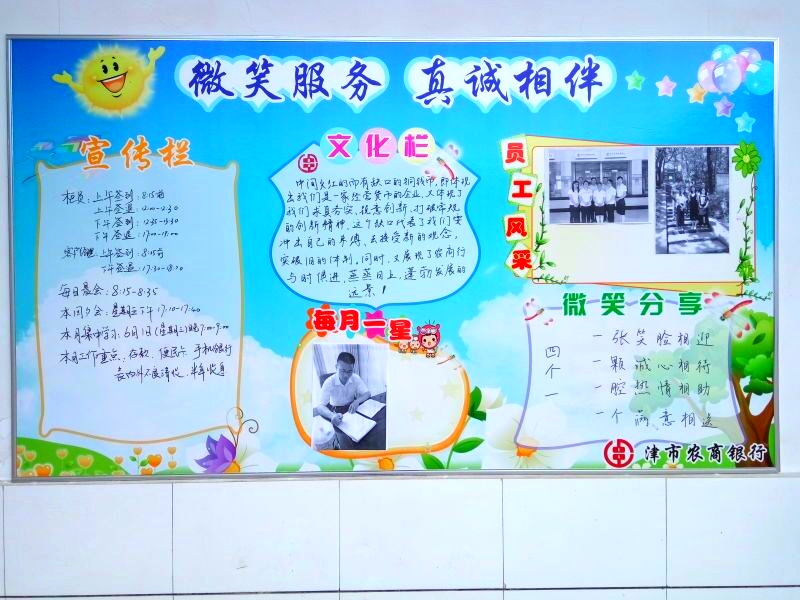 微笑服务 真诚相伴
宣传栏
柜员：上午签到：8:15前
上午签退：12:00-2:30
下午签到：
下午签退：17:00-19:00
上午签到：8:15前
下午签退：17:30-18:20
每日晨会：8:15-8:35
本周夕会：星期三下午 17:10-17:40
本月集中学习：6月1日(星期三)晚7:00-9:00
本月工作重点：存款、便民卡 手机银行
表内外不良清收、收息
文化栏
中间夹红的印有缺口的铜钱币，即体现
出我们是一家经营货币的企业，又体现了
我们求真务实、锐意创新、打破常规
的创新精神，这个缺口代表了我们突
冲出自己的束缚，去接受新的观念，
突破旧的体制，同时，又展现了农商行
与时俱进、蒸蒸日上、蓬勃发展的
远景！
每月一星
员工风采
微笑分享
四个一
一张笑脸相迎
一颗诚心相待
一腔热情相助
一个满意相送
津市农商银行